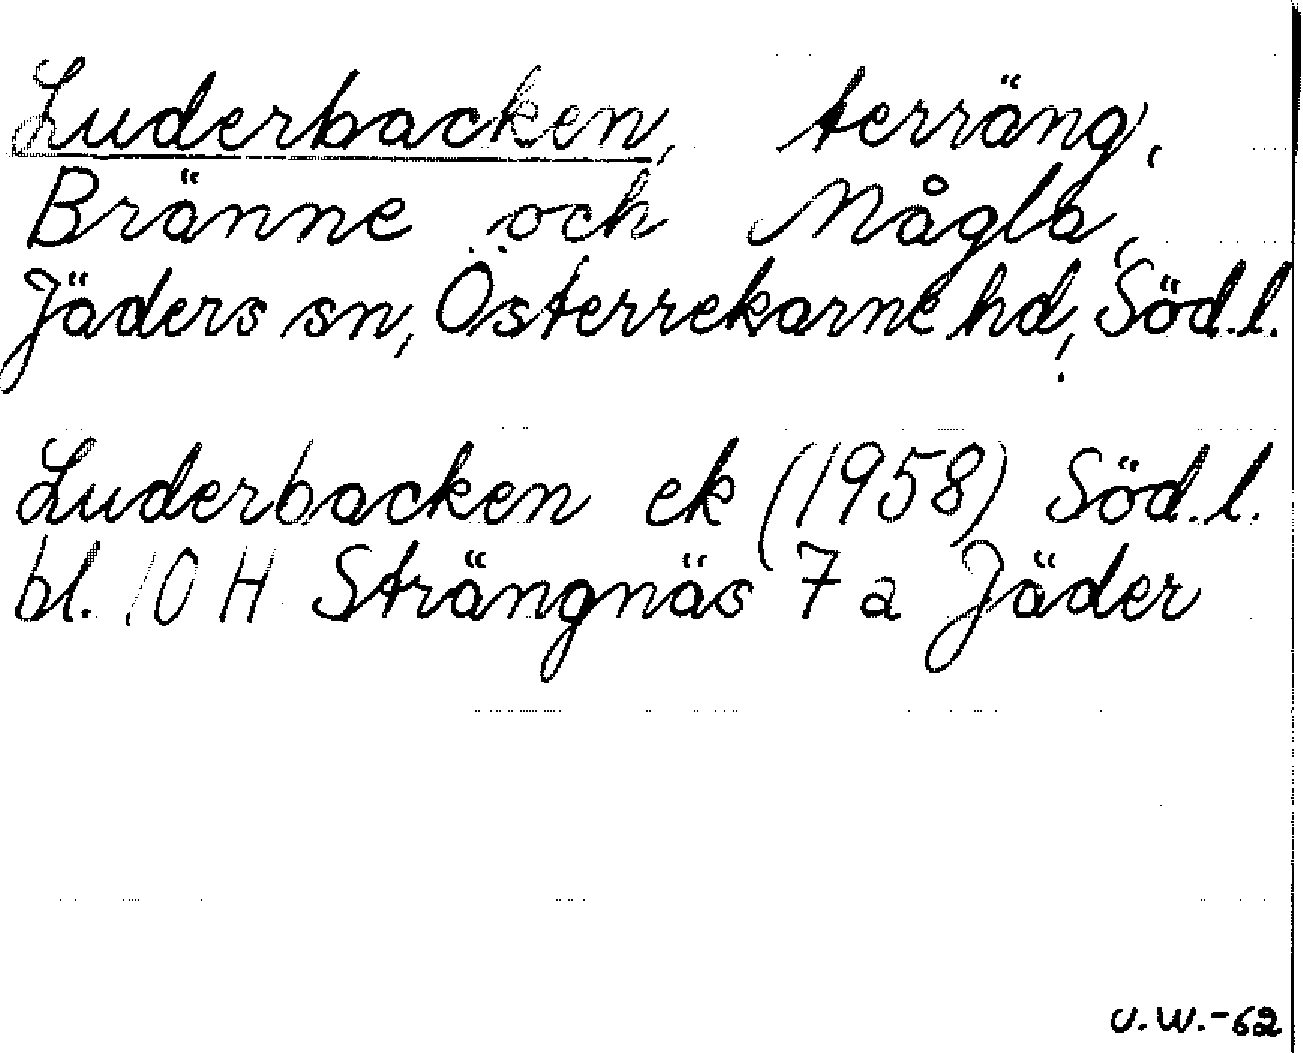 Luderbacken, terräng,
Bränne och Mågla,
Jäders sn, Österrekarne hd, Söd.l.
Luderbacken ek (1958) Söd.l.
bl. 10 H Strängnäs 7 a Jäder
U.W.-62